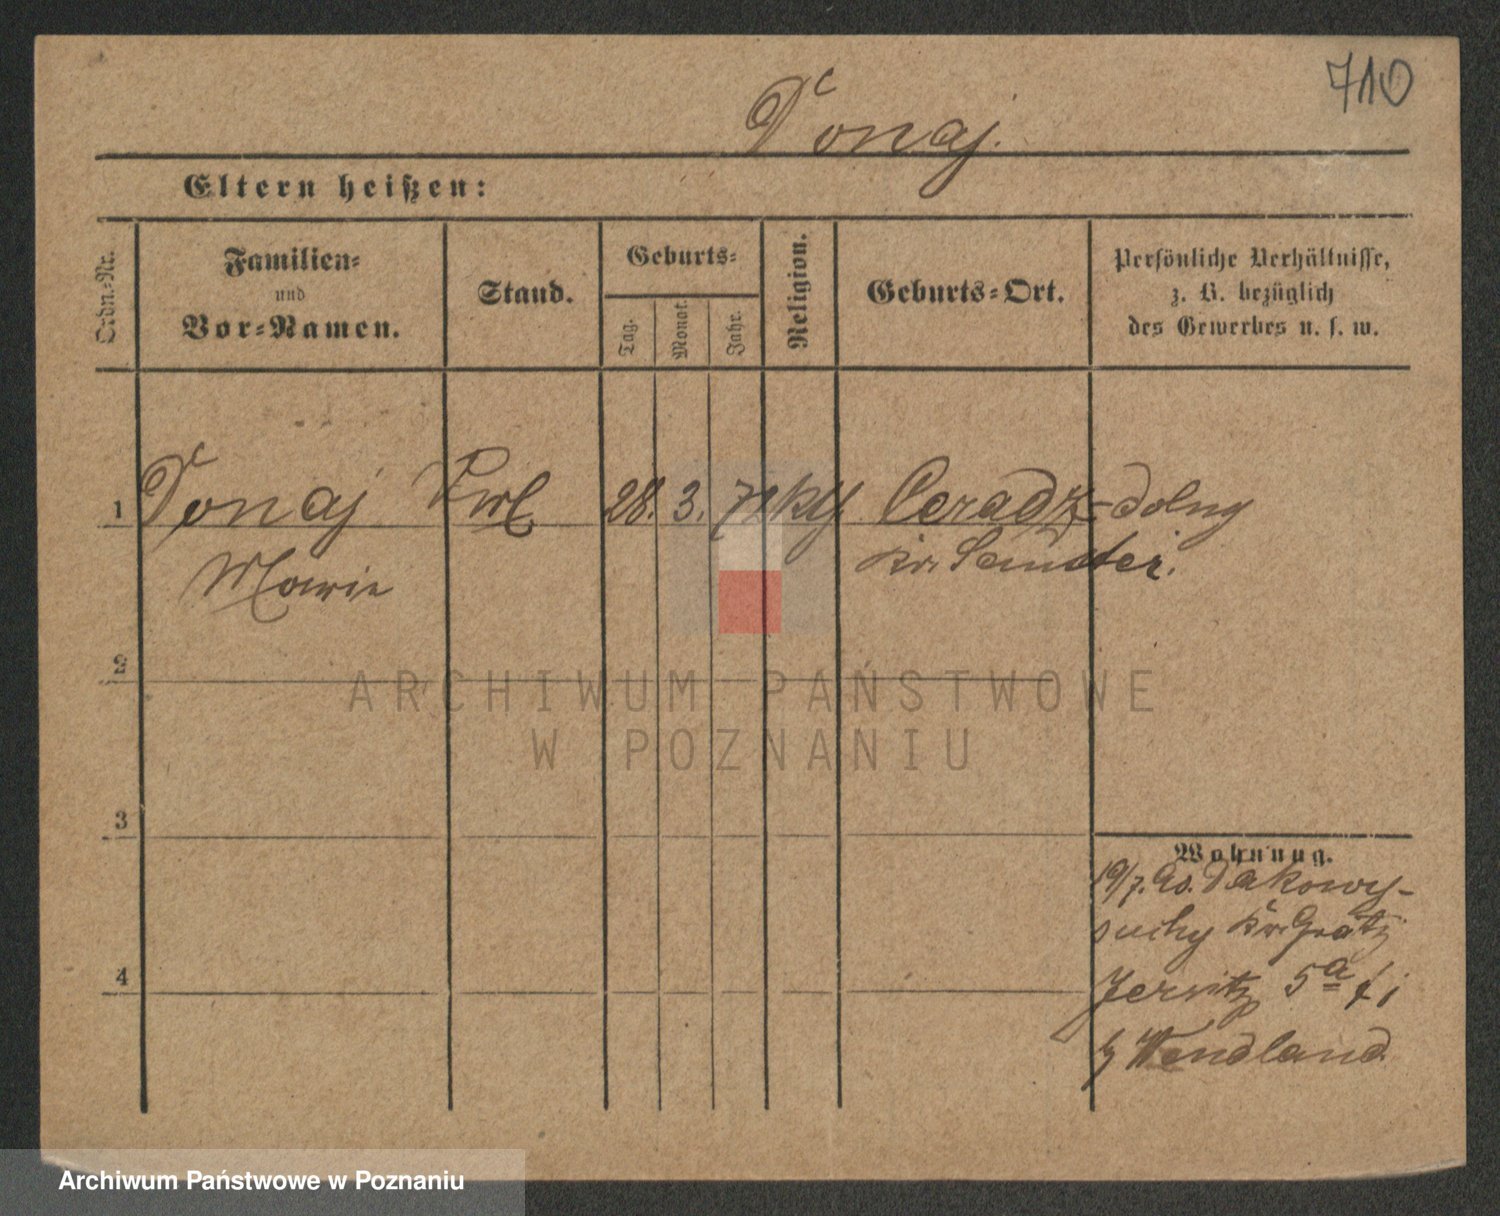 710
Donaj.
Eltern heißen:
Ordn.-Nr.
Familien-
und
Vor-Namen.
Stand.
Geburts-
Tag.
Monat.
Jahr.
Religion.
Geburts-Ort.
Persönliche Verhältnisse,
z. B. bezüglich
des Gewerbes u. s. w.
1 Donaj 28. 3. 72 kth Ceradz-dolny
Marie Kr. Samter.
2
ARCHIWUM PAŃSTWOWE
W POZNANIU
3
Wohnung.
19/7. 90. Dakowy-
suchy Kr. Grätz
4
Jersitz 5a
b/ Wendland
Archiwum Państwowe w Poznaniu